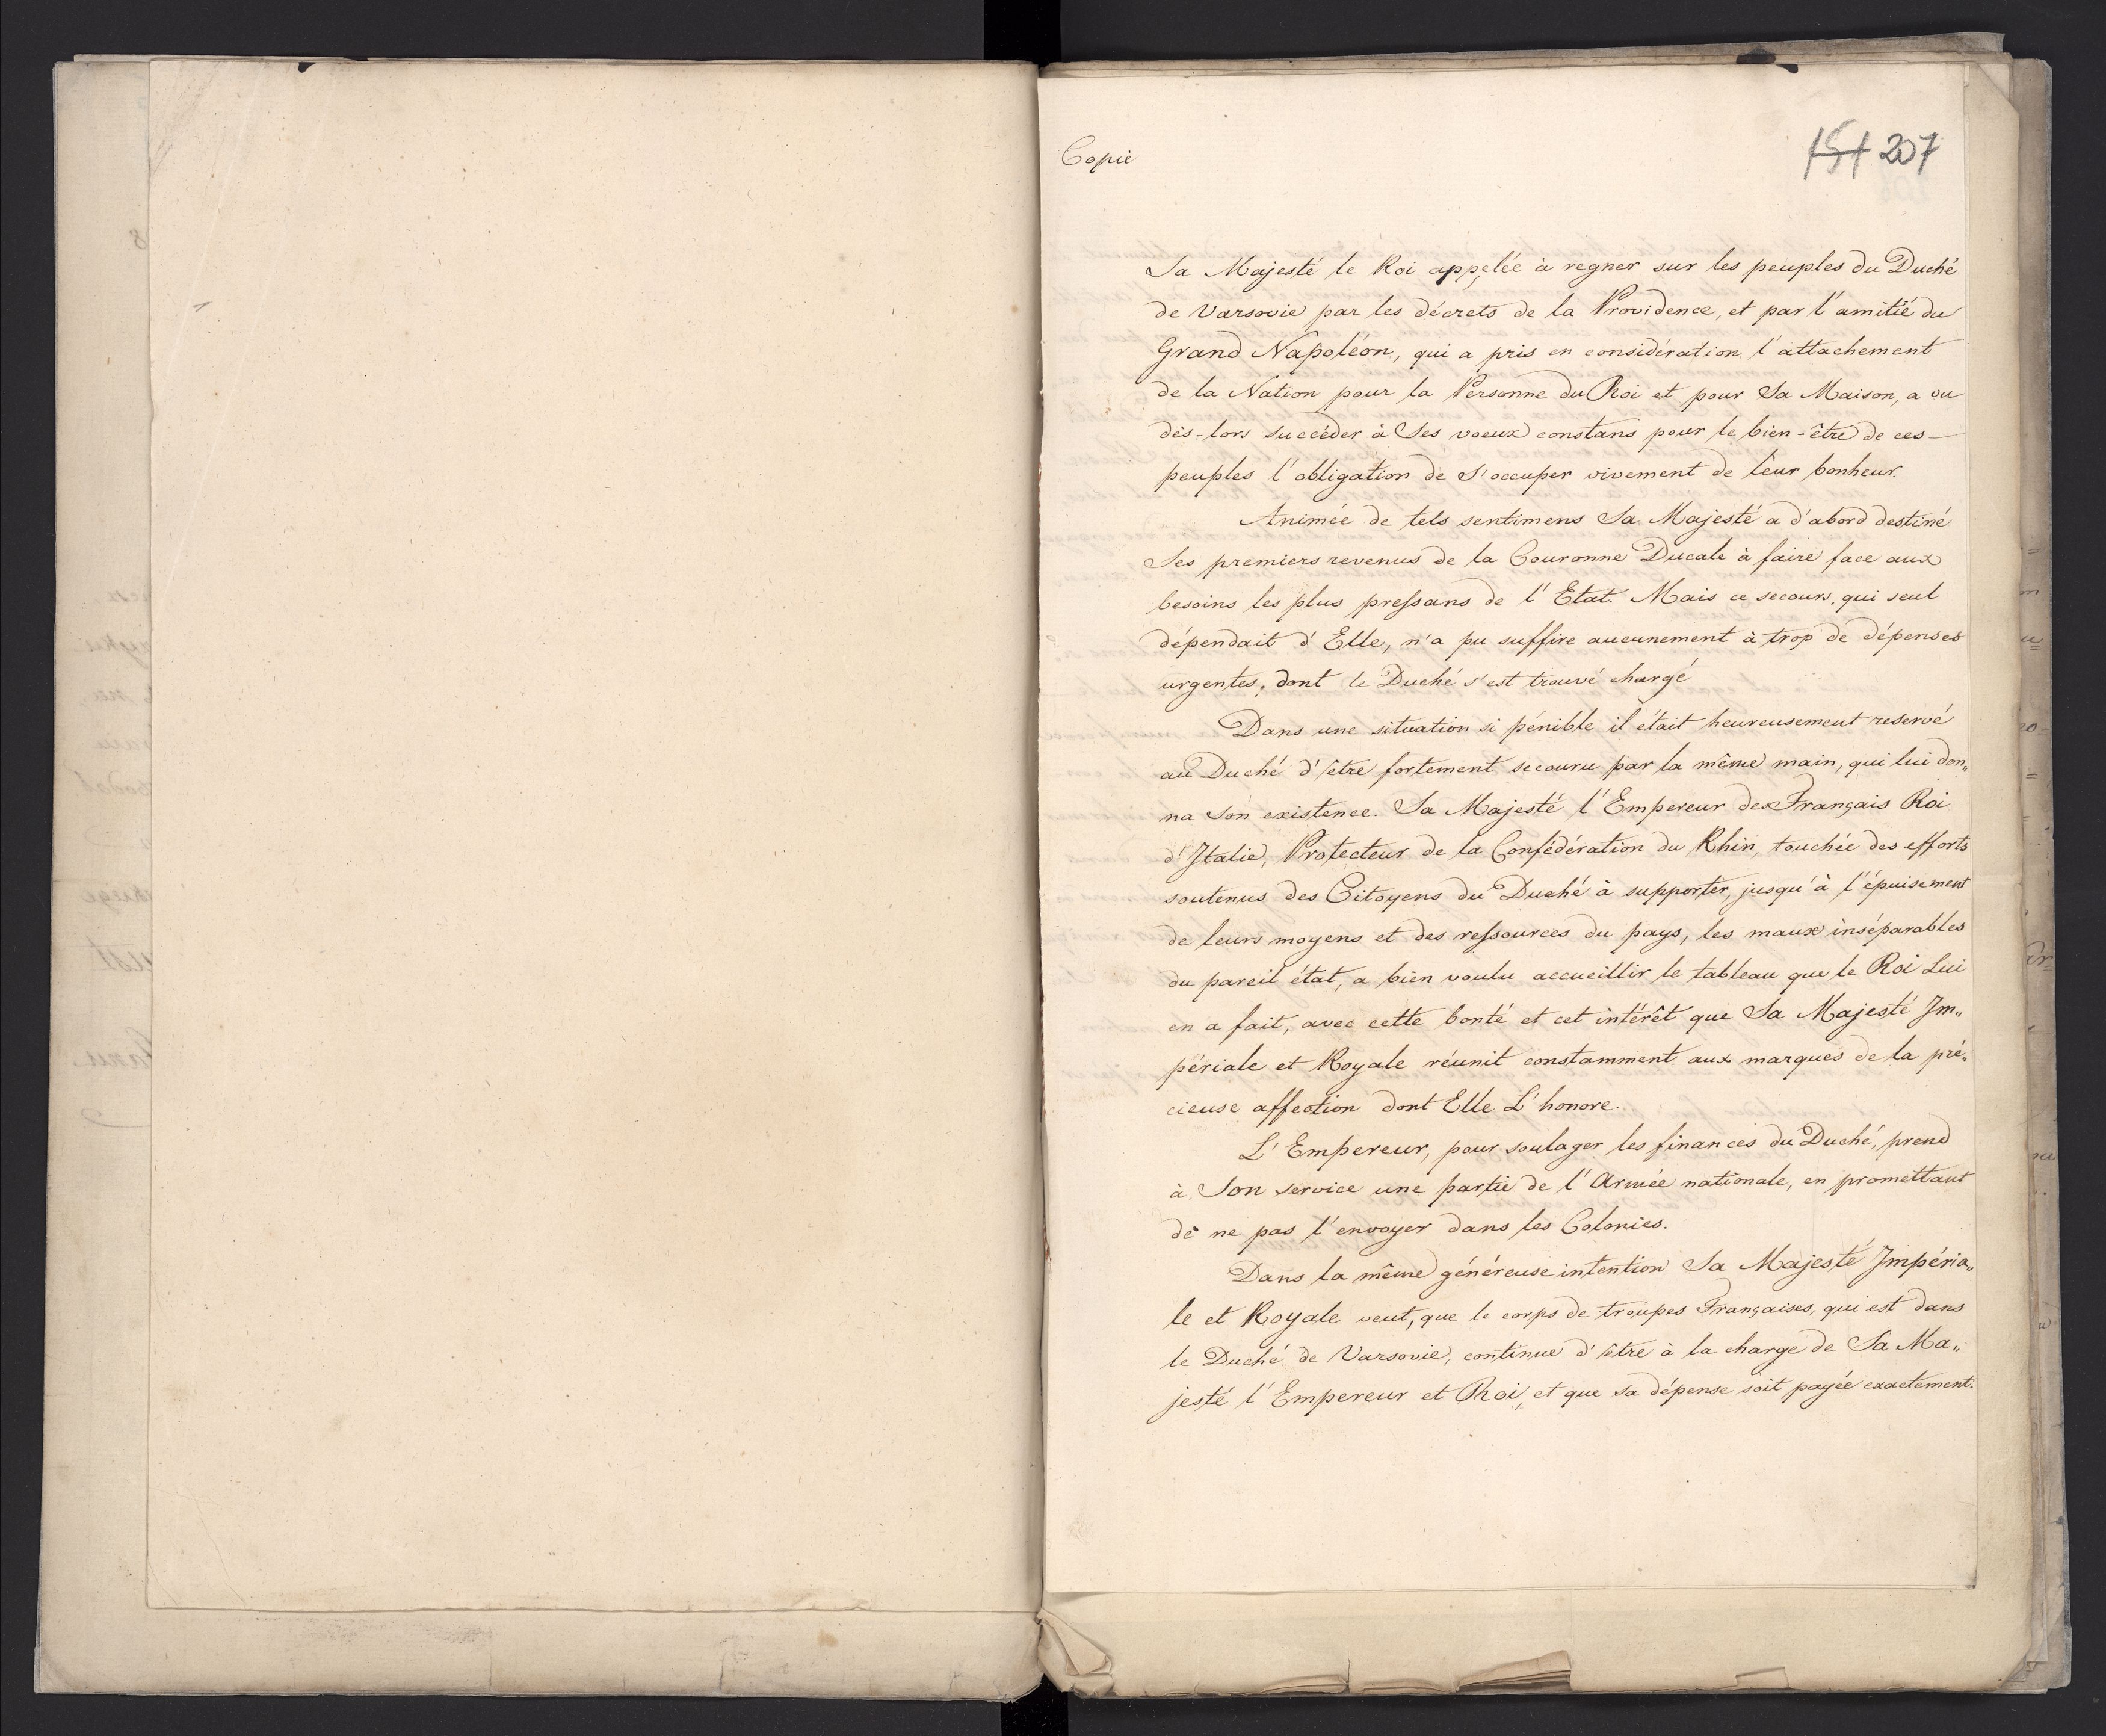 Copie
151 207
Sa Majesté le Roi appelée à regner sur les peuples du Duché
de Varsovie par les décrets de la Providence, et par l'amitié du
Grand Napoléon, qui a pris en considération l'attachement
de la Nation pour la Personne du Roi et pour Sa Maison, a vu
dès-lors succéder à Ses voeux constans pour le bien-être de ces
peuples l'obligation de S'occuper vivement de leur bonheur.
Animée de tels sentimens Sa Majesté a d'abord destiné
Ses premiers revenus de la Couronne Ducale à faire face aux
besoins les plus preſsans de l'Etat. Mais ce secours, qui seul
dépendait d'Elle, n'a pu suffire aucunement à trop de dépenses
urgentes, dont le Duché s'est trouvé chargé
Dans une situation si pénible il était heureusement reservé
au Duché d'être fortement secouru par la même main, qui lui don„
na son existence. Sa Majesté l'Empereur des Français Roi
d'Italie, Protecteur de la Confédération du Rhin, touchée des efforts
soutenus des Citoyens du Duché à supporter, jusqu'à l'épuisement
de leurs moyens et des reſsources du pays, les maux inséparables
du pareil état, a bien voulu accueillir le tableau que le Roi Lui
en a fait, avec cette bonté et cet intérêt que Sa Majesté Im„
périale et Royale réunit constamment aux marques de la pré„
cieuse affection dont Elle L'honore.
L'Empereur, pour soulager les finances du Duché, prend
à Son service une partie de l'Armée nationale, en promettant
de ne pas l'envoyer dans les Colonies.
Dans la même généreuse intention Sa Majesté Impéria„
le et Royale veut, que le corps de troupes Françaises, qui est dans
le Duché de Varsovie, continue d'être à la charge de Sa Ma„
jesté l'Empereur et Roi, et que sa dépense soit payée exactement.